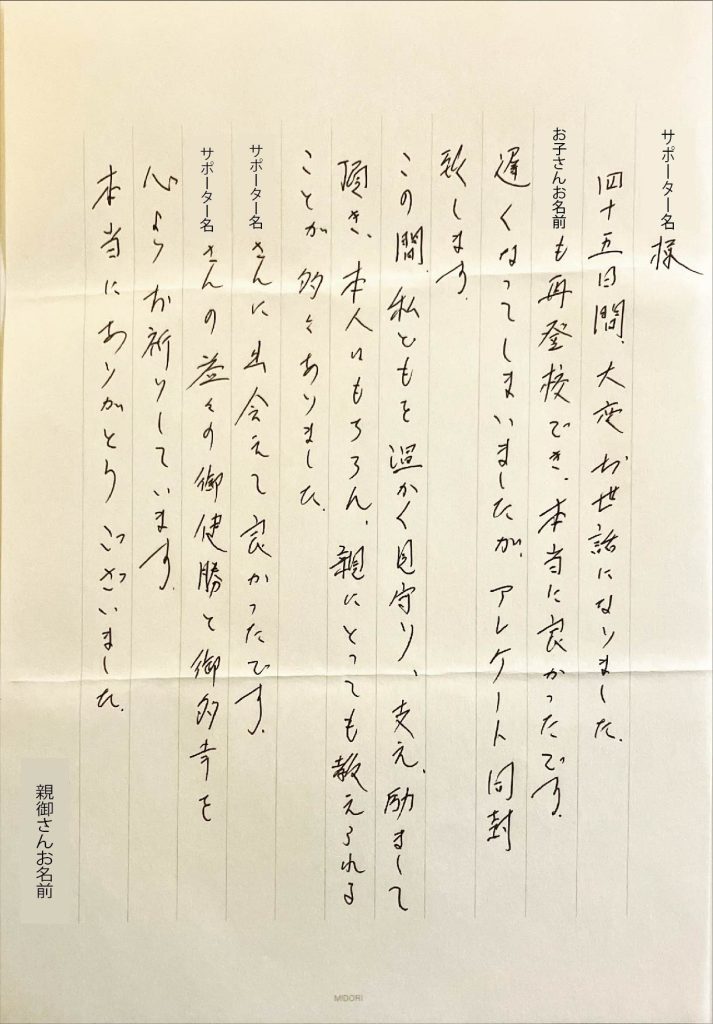 サポーター名様
四十五日間、大変お世話になりました。
お子さんお名前も再登校でき、本当に良かったです。
遅くなってしまいましたが、アンケート同封
致します。
この間、私どもを温かく見守り、支え、励まして
頂き、本人はもちろん、親にとっても教えられる
ことが多々ありました。
サポーター名さんに出会えて良かったです。
サポーター名さんの益々の御健勝と御多幸を
心よりお祈りしています。
本当にありがとうございました。
親御さんお名前
MIDORI